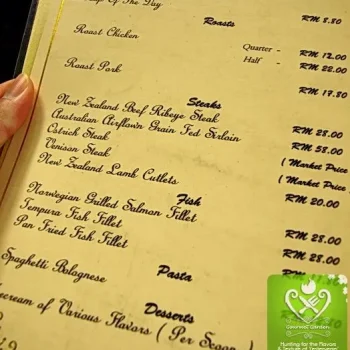 Of The Day RM 8.80
Roasts
Roast Chicken Quarter - RM 12.00
Half - RM 22.00
Roast Pork RM 17.80
Steaks
New Zealand Beef Ribeye Steak RM 28.00
Australian Airflown Grain Fed Sirloin RM 58.00
Ostrich Steak ( Market Price
Venison Steak ( Market Price
New Zealand Lamb Cutlets RM 20.00
Fish
Norwegian Grilled Salmon Fillet RM 28.00
Tempura Fish Fillet RM 28.00
Pan Fried Fish Fillet
Pasta
Spaghetti Bolognese
Desserts
cream of Various Flavors ( Per Scoop
Hunting for the Flavors